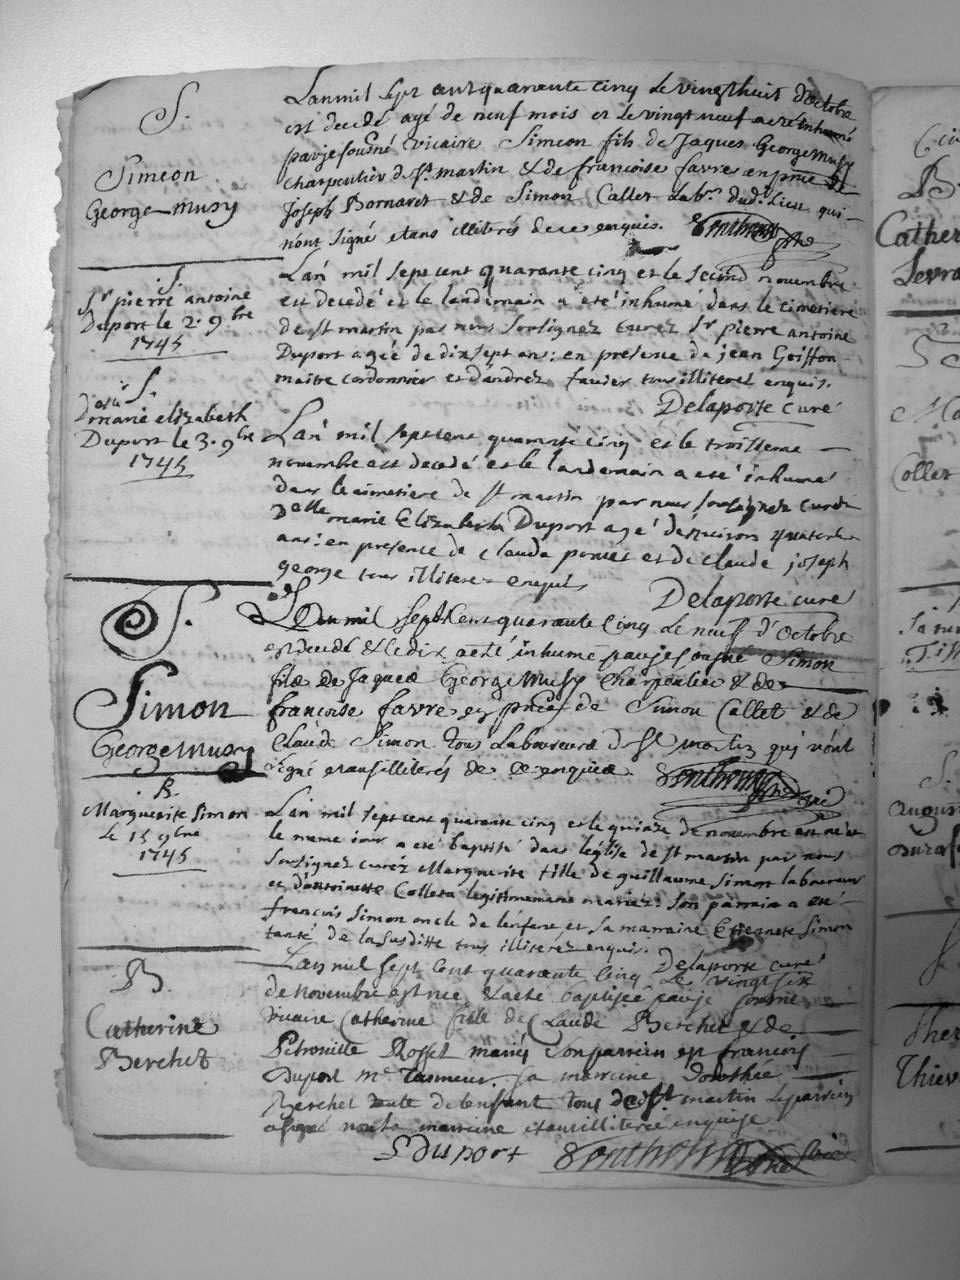 S.
Simeon
George-musy
Lanmil sept cent quarante cinq le vingthuit d'octobre
est decedé agé de neuf mois et le vingt neuf a eté inhumé
par je sousné vicaire Simeon fils de Jaques George musy
charpentier de St. martin & de francoise favre en pnce de
Joseph Bornaret & de Simon Callet Labrs. dud. Lieu qui
n'ont signé etans illiterés de ce enquis.
S.
Sr pierre antoine
Duport le 2. 9bre
1745
Lan mil sept cent quarante cinq et le second novembre
est decedé et le landemain a été inhumé dans le cimetiere
de st martin par nous soussignez curez Sr pierre antoine
Duport agée de dix sept ans: en presence de jean Goiffon
maitre cordonnier et d'andrez favier tous illiterez enquis.
Delaporte curé
S.
d'elle
marie elizabeth
Duport le 3. 9bre
1745
Lan mil sept cent quarante cinq et le troisieme
novembre est decedé et le landemain a eté inhumé
dans le cimetiere de st martin par nous soussignez curez
Delle marie Elizabeth Duport agé d'environ quatorze
ans: en presence de claude et de claude joseph
george tous illiterez enquis
Delaporte curé
S.
Simon
George Musy
L'an mil sept cent quarante cinq Le neuf d'octobre
est decedé & le dix a eté inhumé par je sousigné Simon
fils de Jaques George Musy Charpentier & de
françoise favre en pnce de Simon Callet & de
Claude Simon tous Laboureurs de St martin qui n'ont
signé etans illiterés de ce enquis.
B.
Marguerite Simon
le 15 9bre
1745
Lan mil sept cent quarante cinq et le quinze de novembre est né et
le meme jour a eté baptisé dans l'église de st martin par nous
soussignez curez Marguerite fille de guillaume Simon laboureur
et d'antoinette Colleta legitimement mariez: son parrain a eté
françois Simon oncle de l'enfant et sa marraine Ettiennete Simon
tante de la susditte tous illiterez enquis.
Delaporte curé
B.
Catherine
Berchet
Lan mil sept cent quarante cinq Le vingt six
de Novembre est née & a eté baptisée par je sousné
vicaire Catherine fille de Claude Berchet & de
Petronille Rosset mariés son parrein est francois
Duport me. Tanneur. sa mareine Dorothée
Berchet tante de lenfant tous de St. martin le parrein
a signé non la marreine etant illiterée enquise
Duport